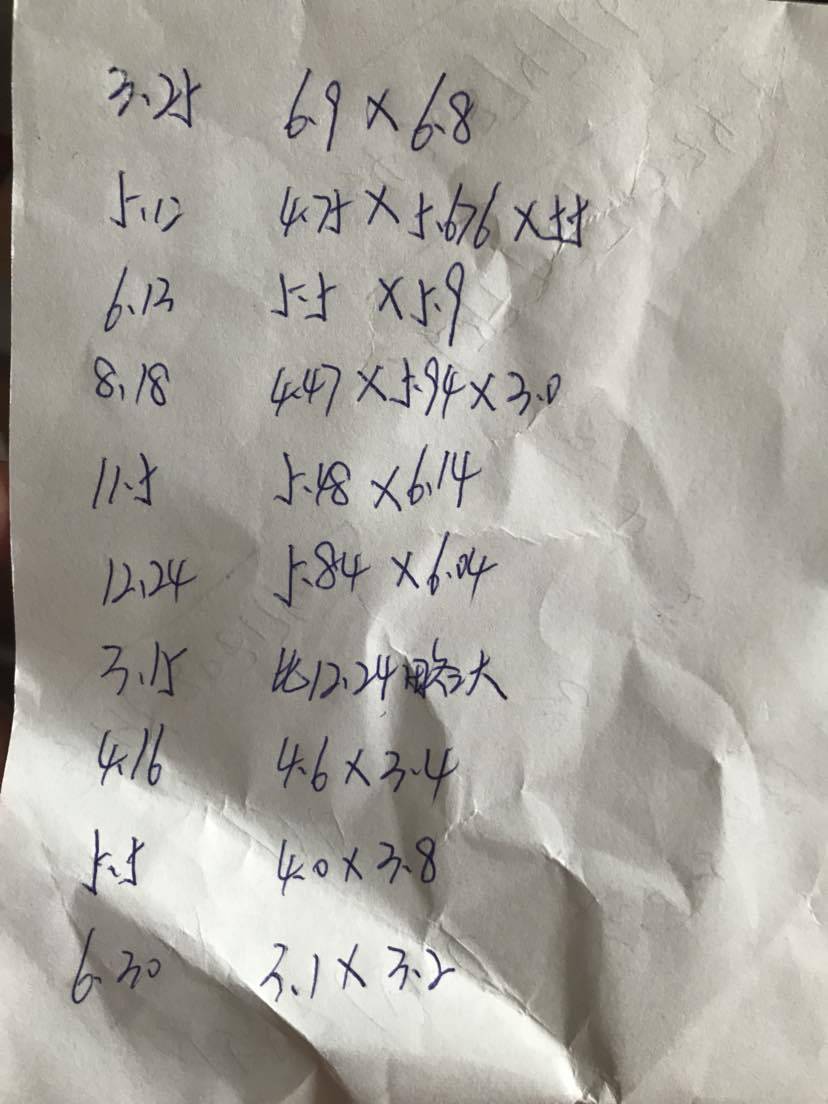 3.25 6.9 × 6.8
5.12 4.75 × 5.676 × 5.5
6.13 5.5 × 5.9
8.18 4.47 × 5.94 × 3.0
11.5 5.48 × 6.14
12.24 5.84 × 6.04
3.15 比12.24略大
4.16 4.6 × 3.4
5.5 4.0 × 3.8
6.30 3.1 × 3.2